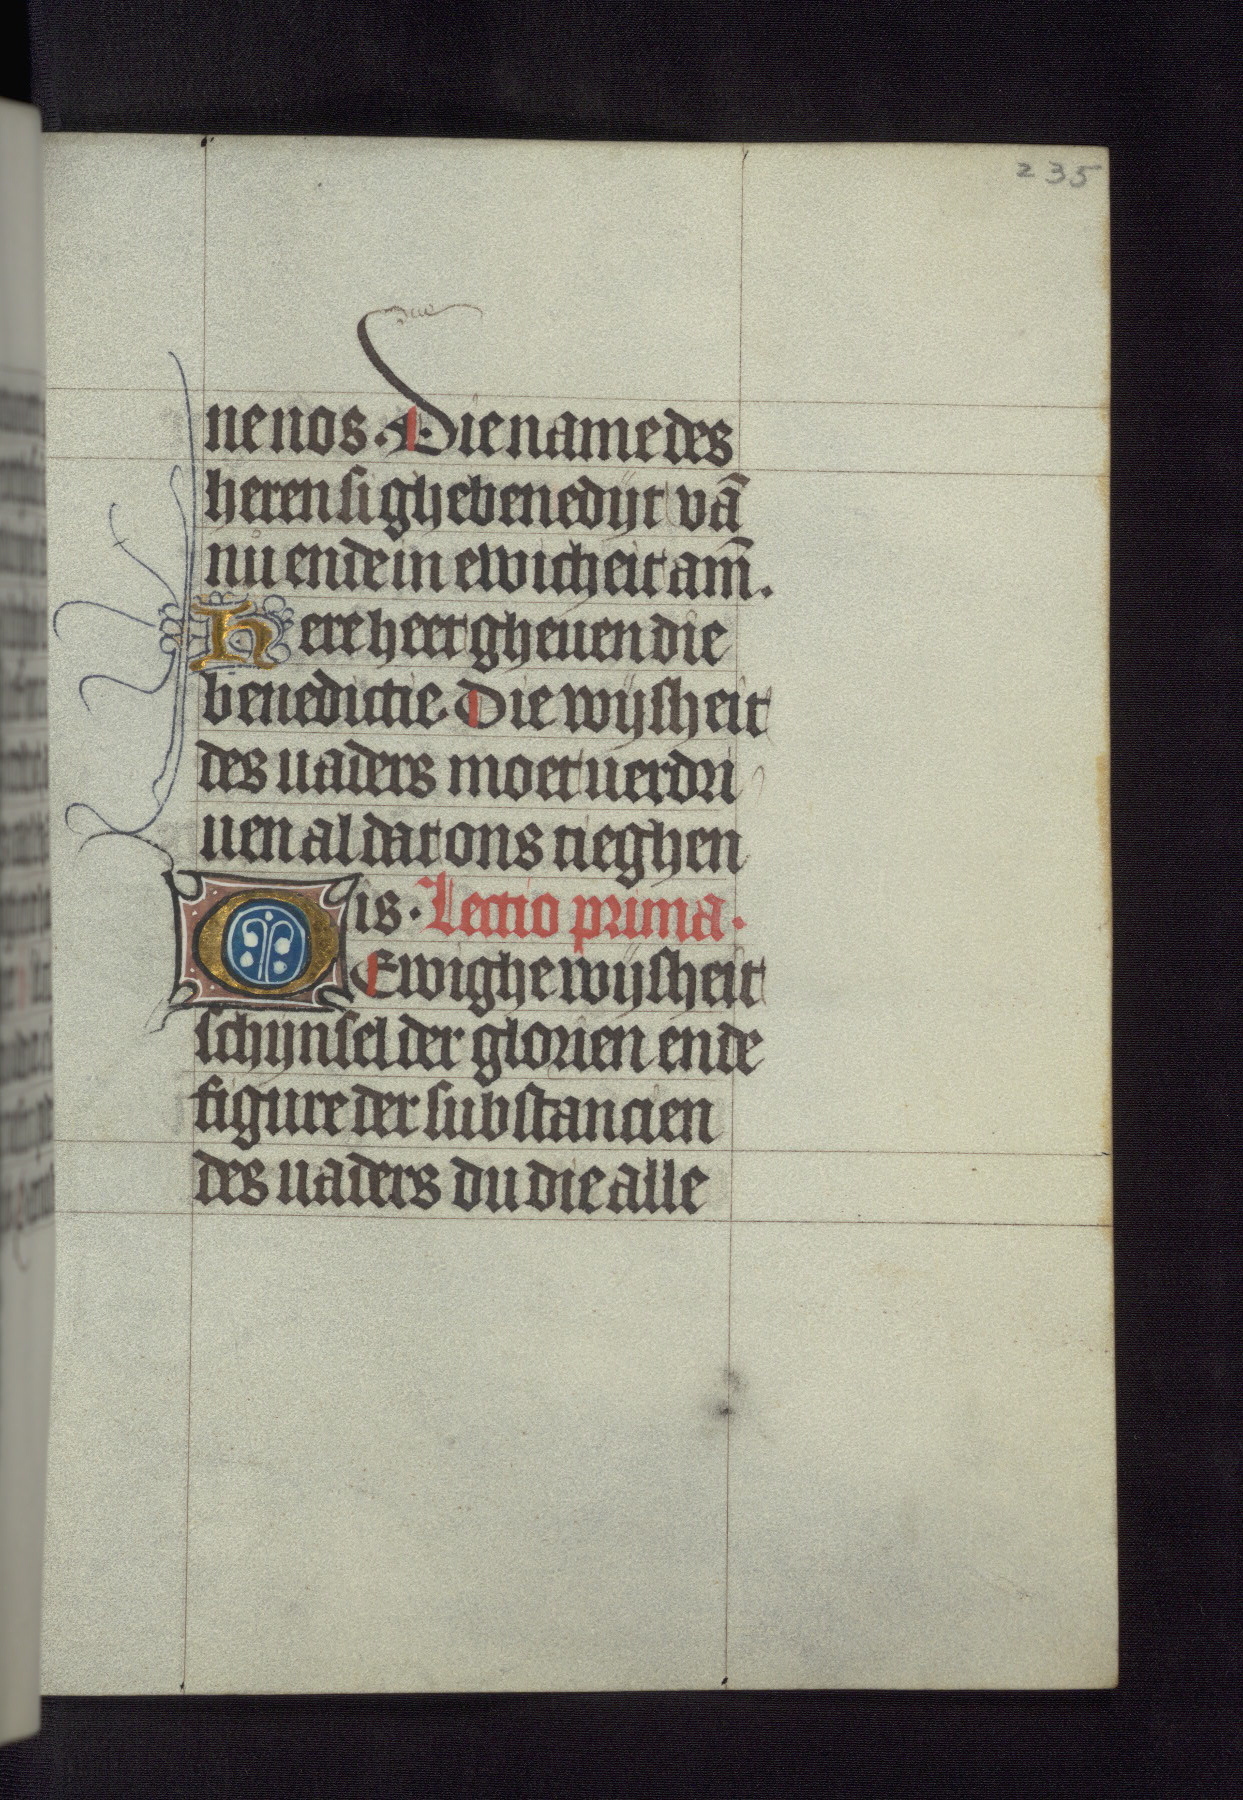 235
ne uos. Die name des
heren si ghebenedijt vā
nu ende in ewicheit am̄.
Here heer gheuen die
benedictie. Die wijsheit
des uaders moet uerdri
uen al dat ons tieghen
is. Lectio prima.
O Ewighe wijsheit
schijnsel der glorien ende
figure der substancien
des uaders du die alle